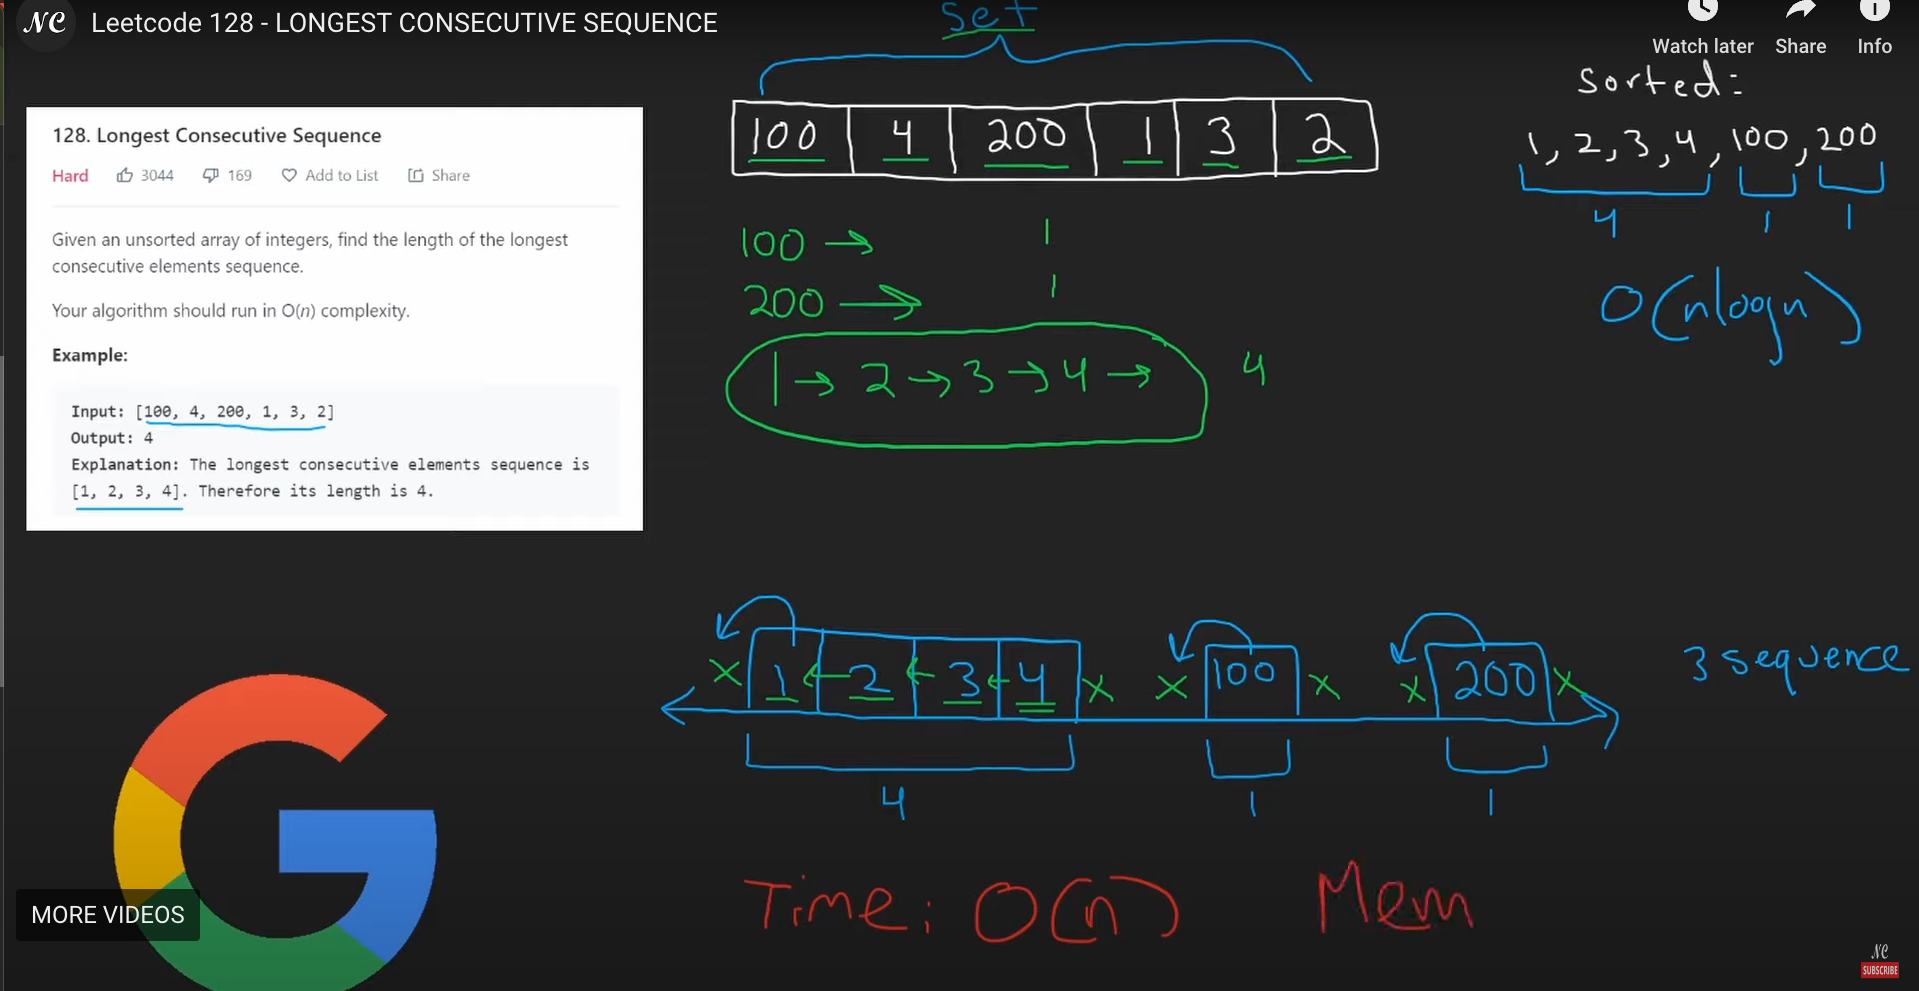 NC Leetcode 128 - LONGEST CONSECUTIVE SEQUENCE
Watch later Share Info
128. Longest Consecutive Sequence
Hard 3044 169 Add to List Share
Given an unsorted array of integers, find the length of the longest
consecutive elements sequence.
Your algorithm should run in O(n) complexity.
Example:
Input: [100, 4, 200, 1, 3, 2]
Output: 4
Explanation: The longest consecutive elements sequence is
[1, 2, 3, 4]. Therefore its length is 4.
Set
100 4 200 1 3 2
100 → 1
200 → 1
1 → 2 → 3 → 4 → 4
Sorted:
1, 2, 3, 4, 100, 200
4 1 1
O(nlogn)
x 1 ← 2 ← 3 ← 4 x x 100 x x 200 x
4 1 1
3 sequence
Time: O(n) Mem
MORE VIDEOS
NC
SUBSCRIBE